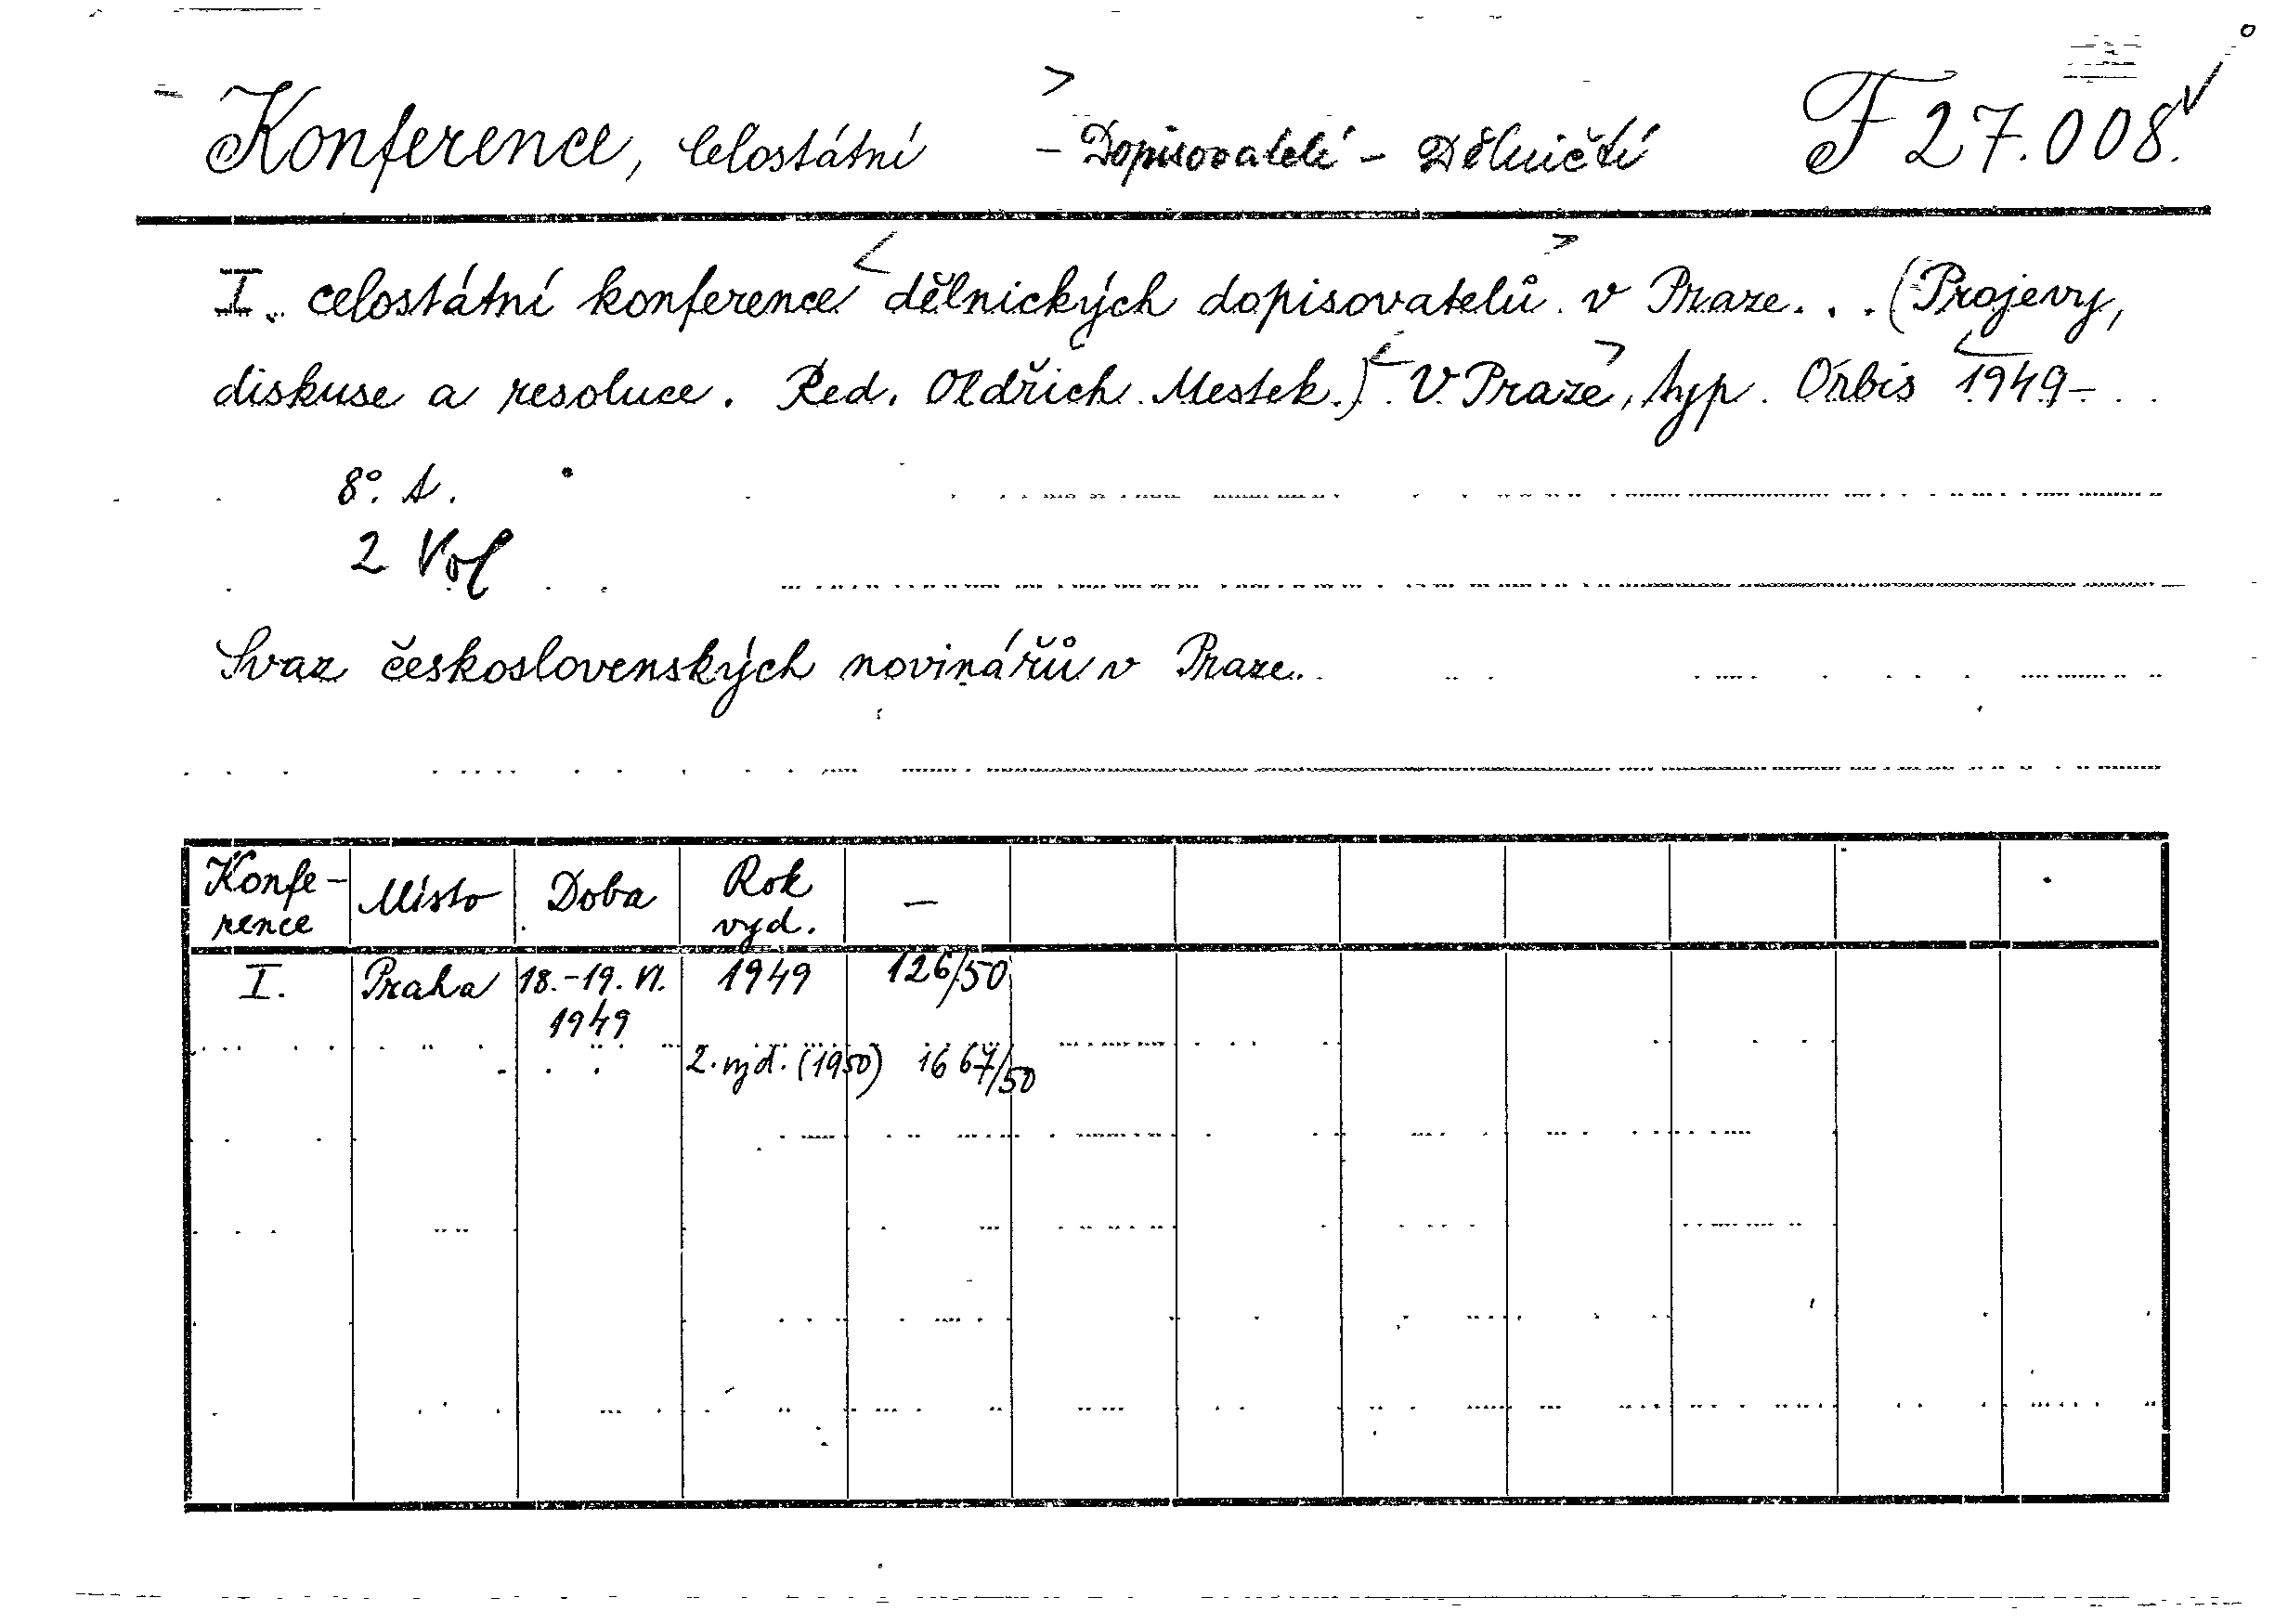 Konference, celostátní - Dopisovatelé - Dělničtí F 27.008.
I. celostátní konference dělnických dopisovatelů v Praze... (Projevy,
diskuse a resoluce. Red. Oldřich Mestek.) V Praze, typ. Orbis 1949-
8°. A.
2 Vol
Svaz československých novinářů v Praze.
Konfe-rence Místo Doba Rok vyd. —
I. Praha 18.-19. VI. 1949 1949 126/50
2. vyd. (1950) 1667/50